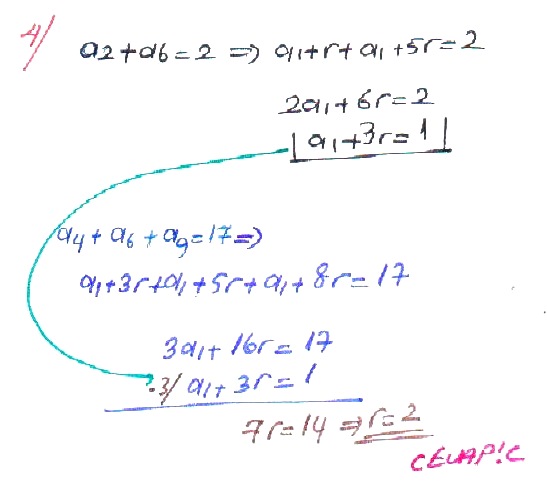 4/
a2+a6=2 => a1+r+a1+5r=2
2a1+6r=2
a1+3r=1
a4+a6+a9=17=>
a1+3r+a1+5r+a1+8r=17
3a1+16r=17
-3/ a1+3r=1
7r=14 => r=2
CEVAP:C